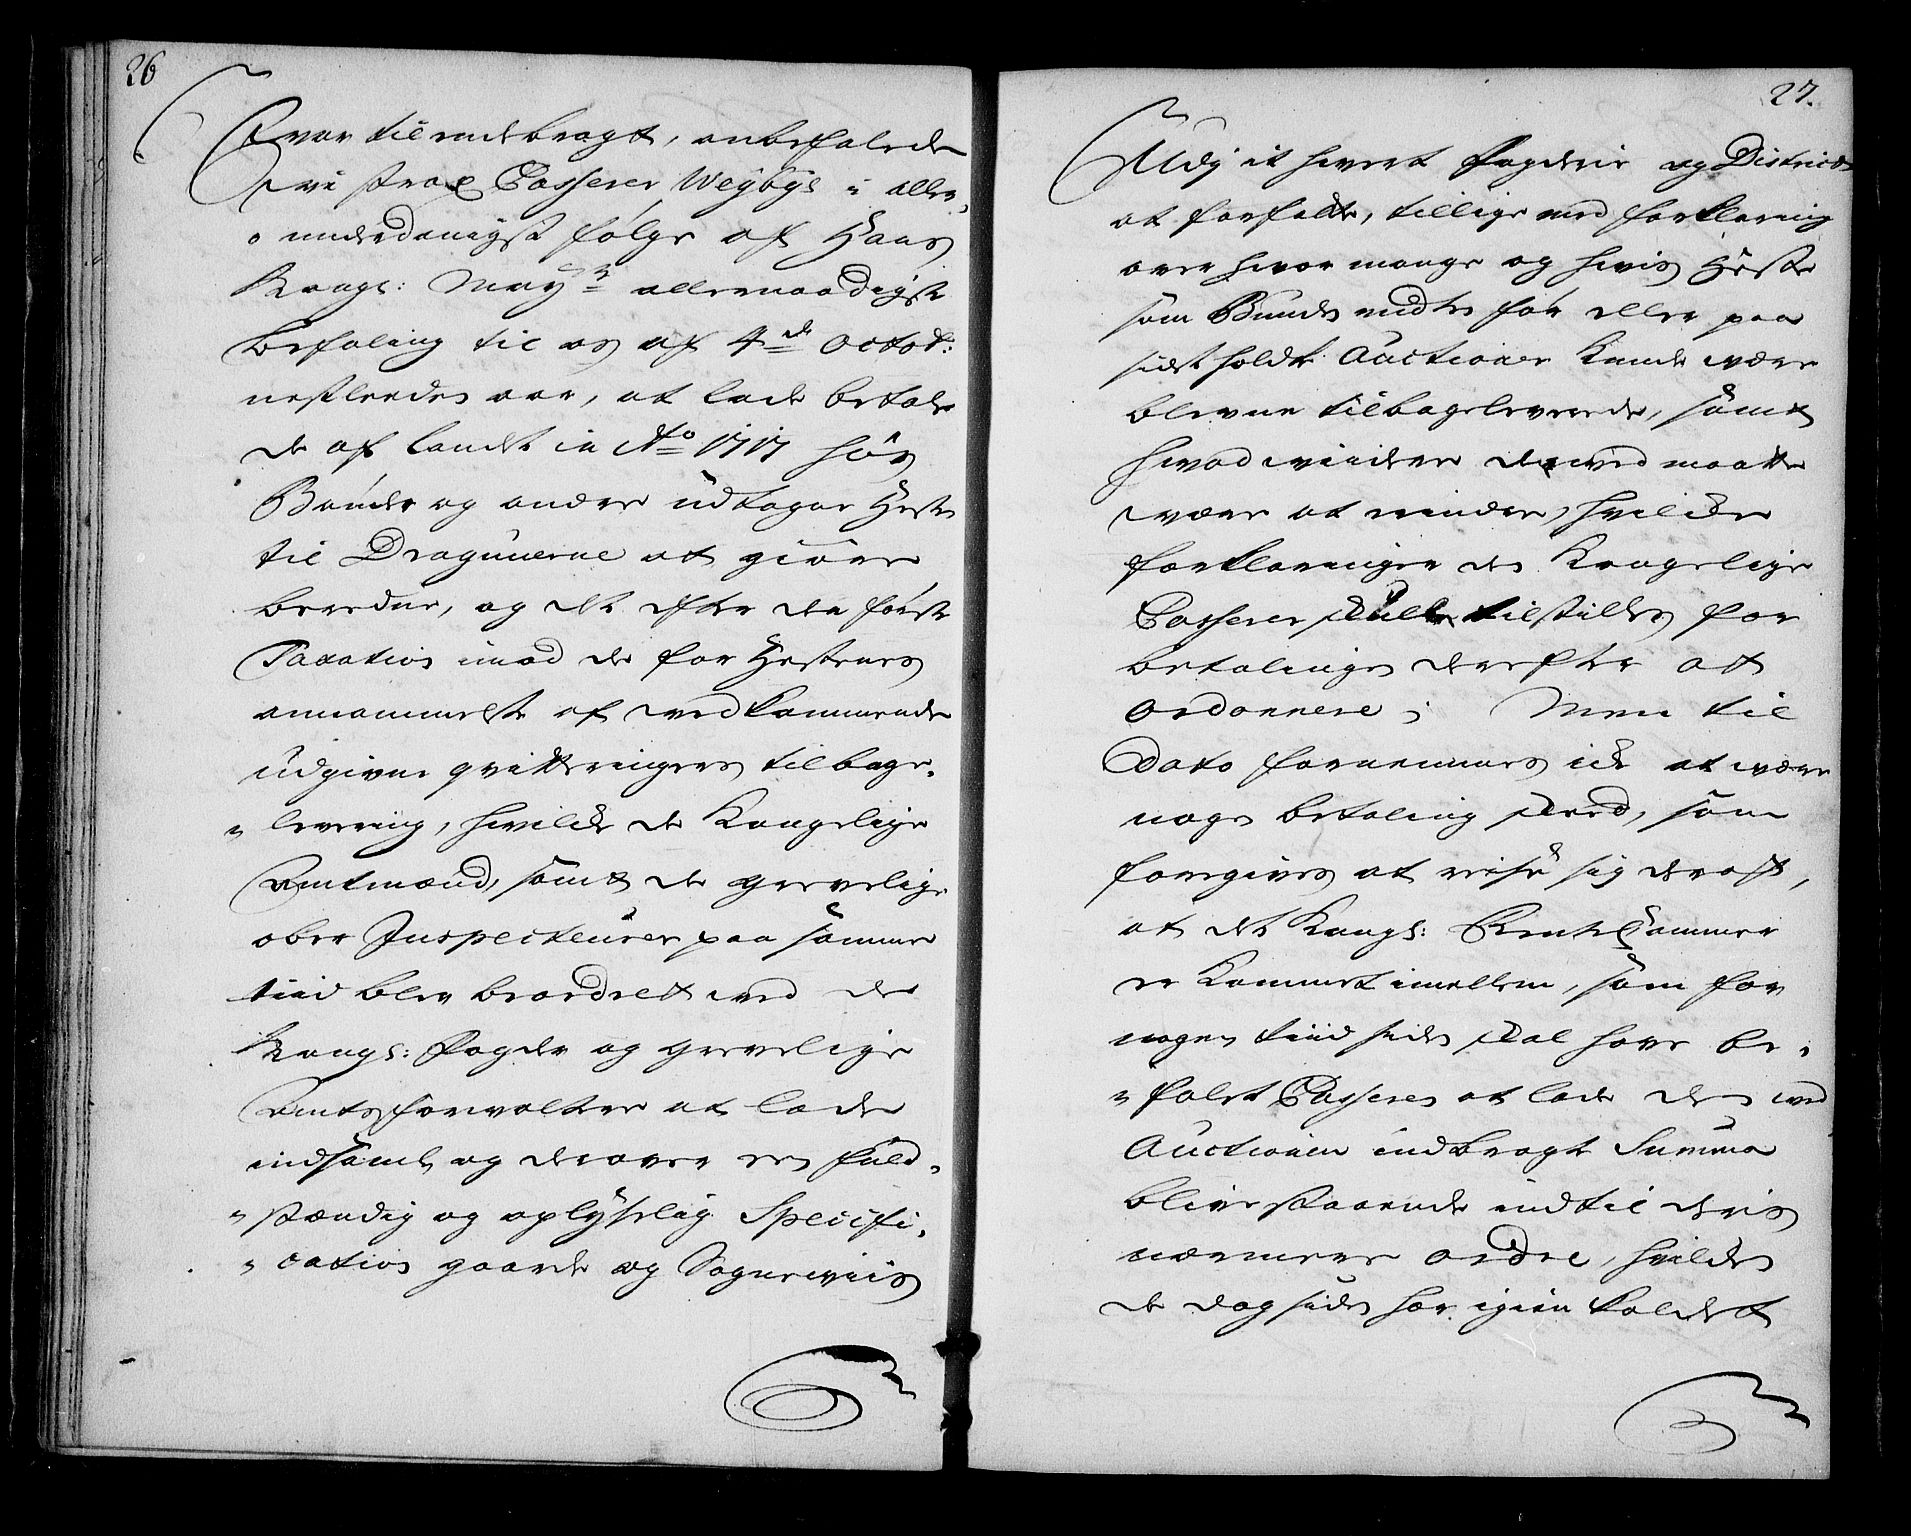 26
var til ende bragt, anbefalede
vi strax Casserer Weybye i aller,
„underdanigst følge af Hans
Kongl: Mayts allernaadigste
befaling til os af 4de Octobr:
nestleden aar, at lade betale
de af landet in Ao 1717 hos
Bønder og andre udtagne Heste
til Dragunerne at giøre
beredne, og det efter den første
Taxation imod de for Hestenes
annammelse af vedkommende
udgivne qvitteringers tilbage„
„levering, hvilcke de Kongelige
Amtmænd, samt de grevelige
ober Inspecteurer paa samme
tiid blev beordret ved de
Kongl: Fogder og grevelige
Amtsforvaltere at lade
indsamle og derover en fuld„
„stændig og oplyselig Specifi„
„cation gaarde og Sogneviis
27.
Udj it hvert Fogderie og District
at forfatte, tillige med forklaring
over hvor mange og hvis Heste
som Bunden enten før eller paa
sidst holdte Auctioner kunde være
blevne tilbageleverede, samt
hvad viidere derved maatte
være at erindre, hvilcke
forklaringer den Kongelige
Casserer skulle tilstilles for
betalingen derefter at
ordonnere; Men til
Dato fornemmes ick at være
nogen betaling skeed, som
foregives at reise sig deraf,
at det Kongl: Rente Cammer
er kommet imellem, som for
nogen tiid siden skal have be„
„falet Casseren at lade den ved
Auctionen indbragte Summa
blive staaende indtil deris
nærmere ordre, hvilcken
de dog siden har igien kaldet